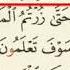 حَتَّىٰ زُرْتُمُ الْمَ
سَوْفَ تَعْلَمُونَ